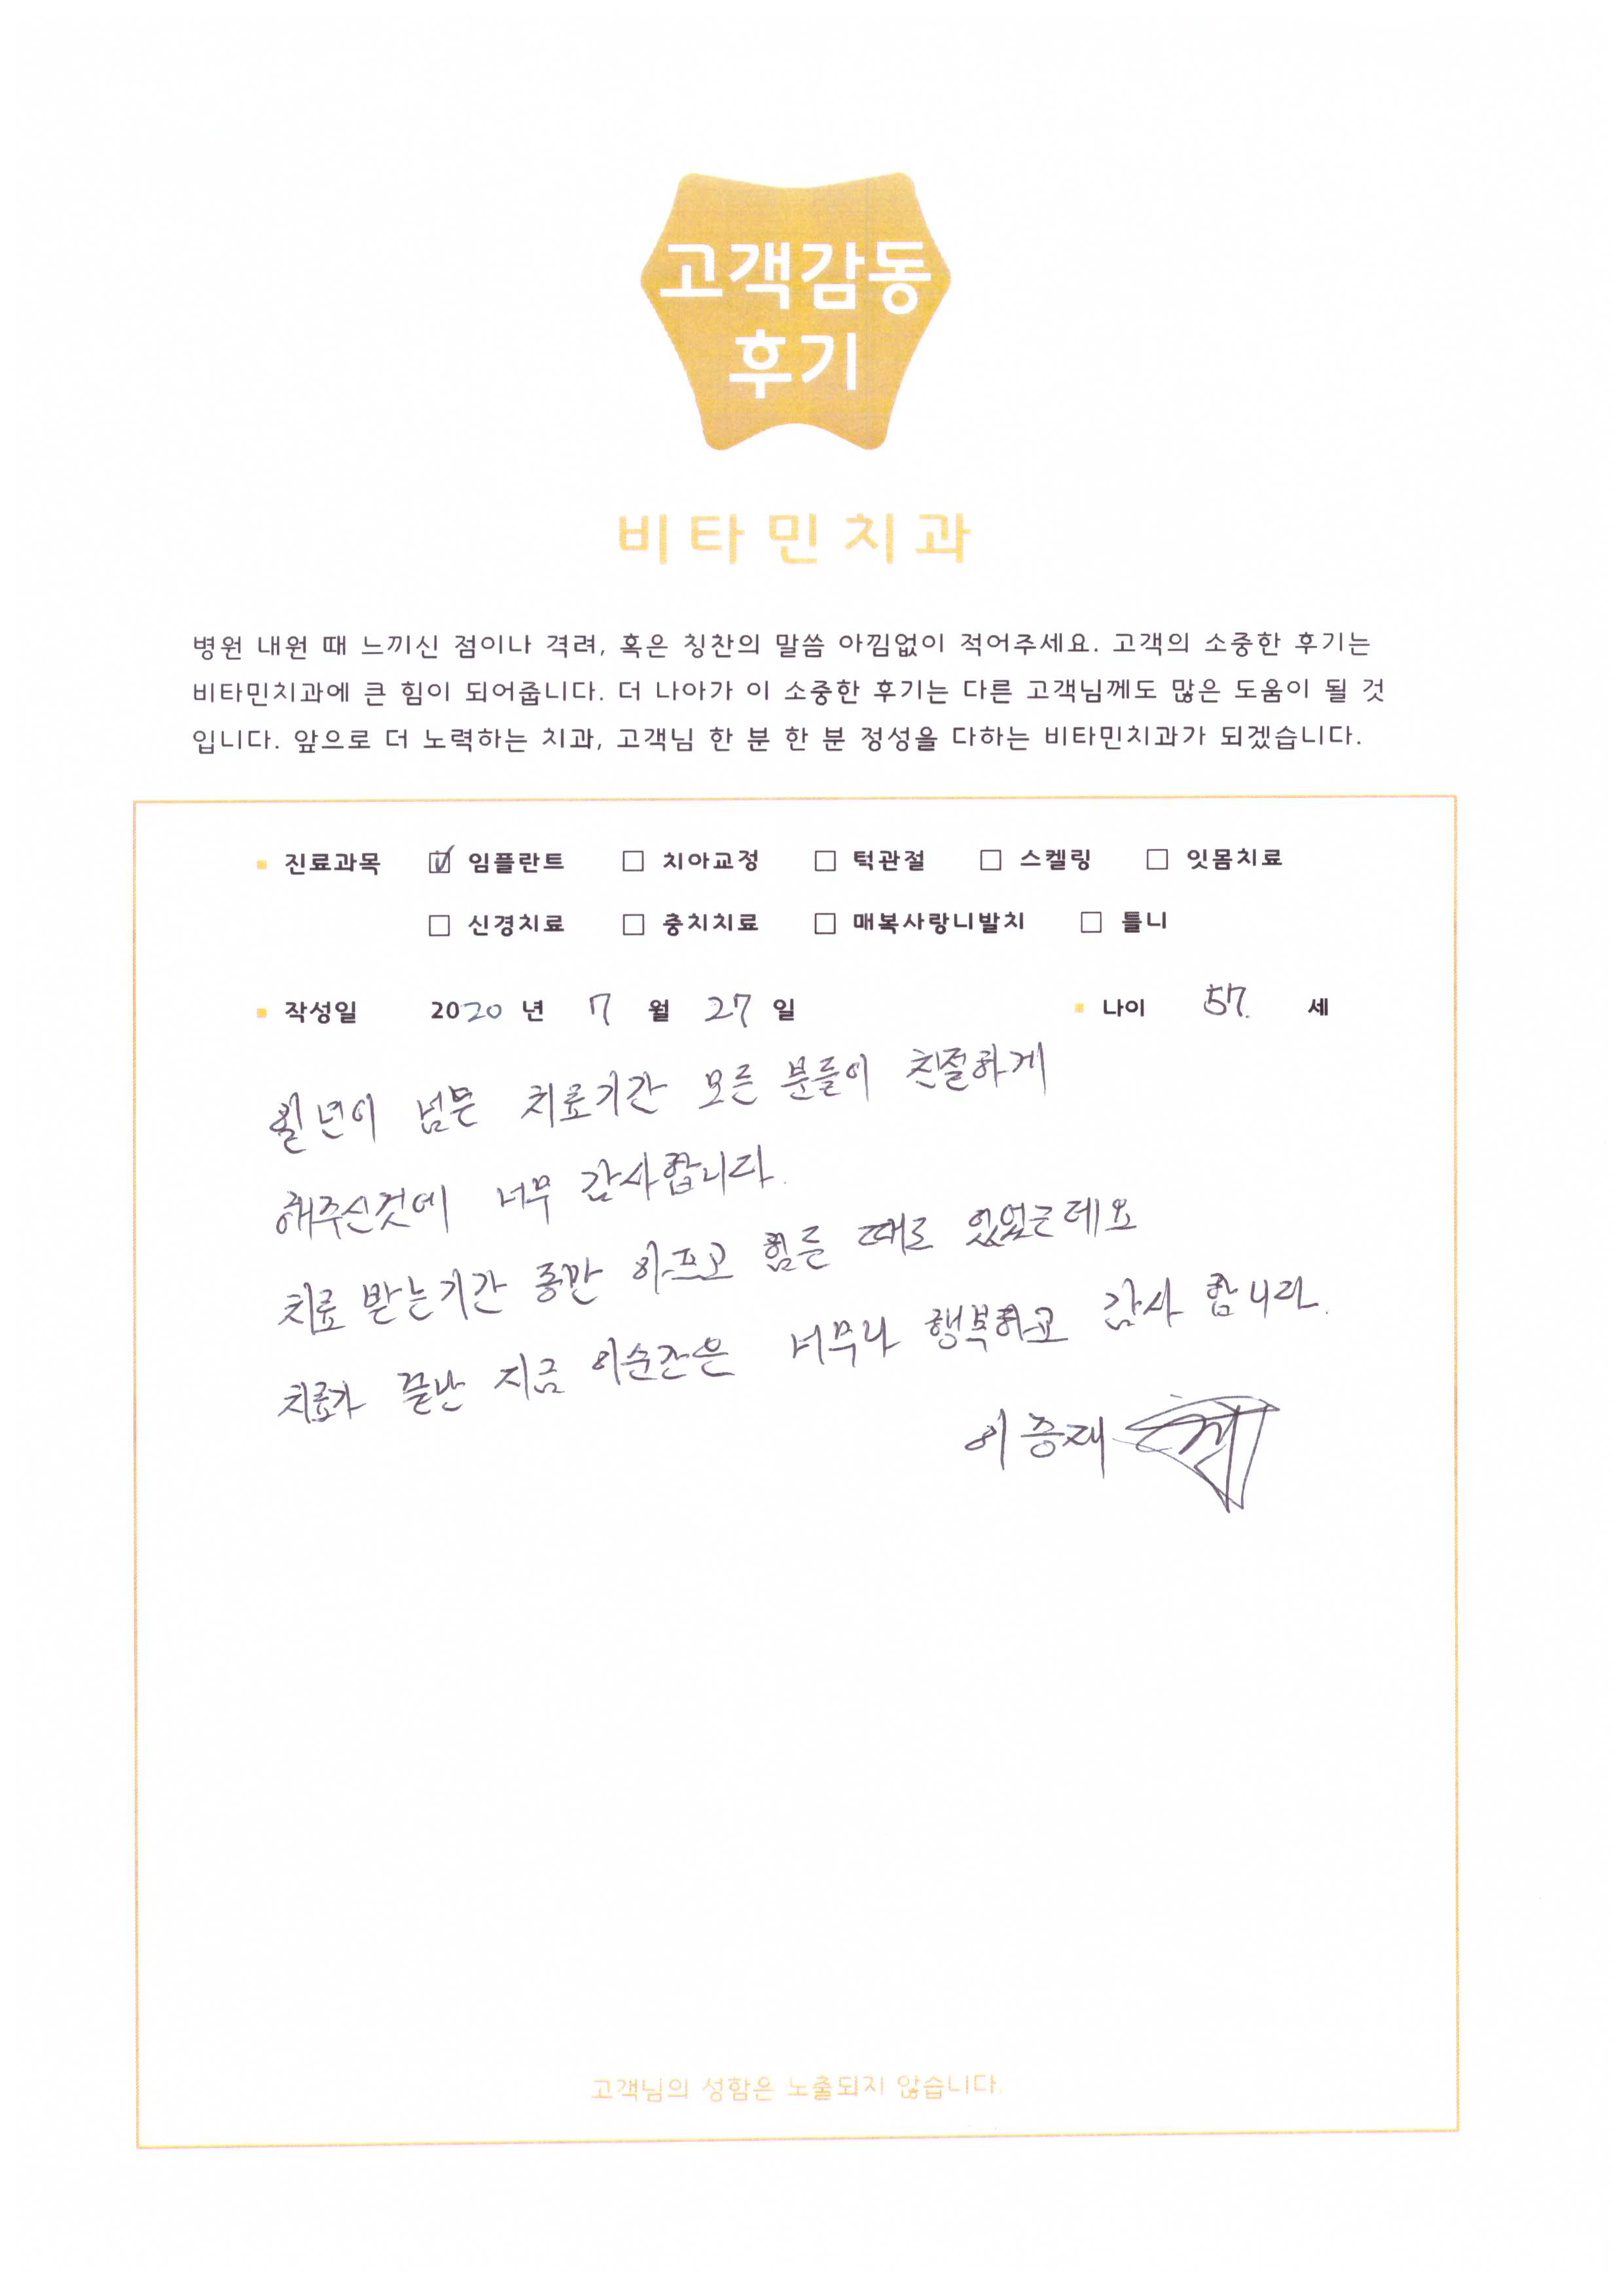 고객감동
후기
비타민치과
병원 내원 때 느끼신 점이나 격려, 혹은 칭찬의 말씀 아낌없이 적어주세요. 고객의 소중한 후기는
비타민치과에 큰 힘이 되어줍니다. 더 나아가 이 소중한 후기는 다른 고객님께도 많은 도움이 될 것
입니다. 앞으로 더 노력하는 치과, 고객님 한 분 한 분 정성을 다하는 비타민치과가 되겠습니다.
진료과목 임플란트 치아교정 턱관절 스켈링 잇몸치료
신경치료 충치치료 매복사랑니발치 틀니
작성일 2020 년 7 월 27 일 나이 57. 세
년이 넘는 치료기간 모든 분들이 친절하게
해주신것에 너무 감사합니다.
치료 받는기간 동안 아프고 힘든 때로 있었는데요
치료가 끝난 지금 이순간은 너무나 행복하고 감사 합니다.
고객님의 성함은 노출되지 않습니다.